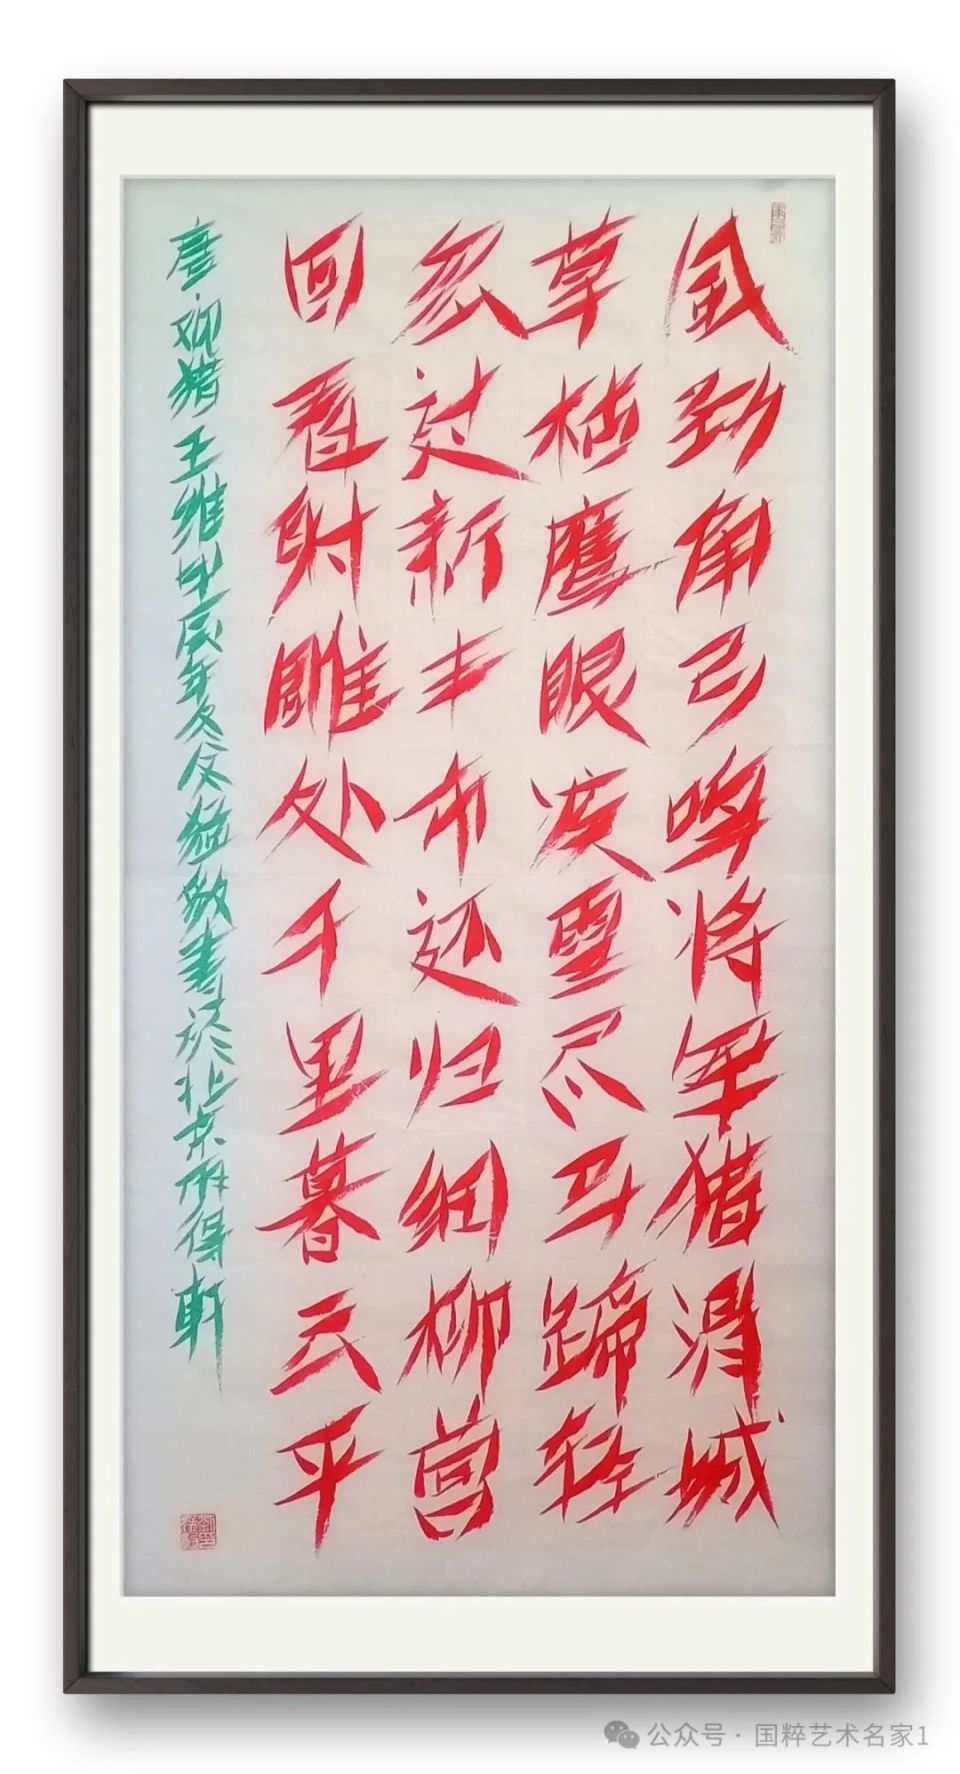 風劲角弓鸣将军猎渭城
草枯鹰眼疾雪尽马蹄轻
忽过新丰市还归细柳营
回看射雕处千里暮云平
唐观猎王维甲辰年冬猛敬书於北京得軒
公众号·国粹艺术名家1